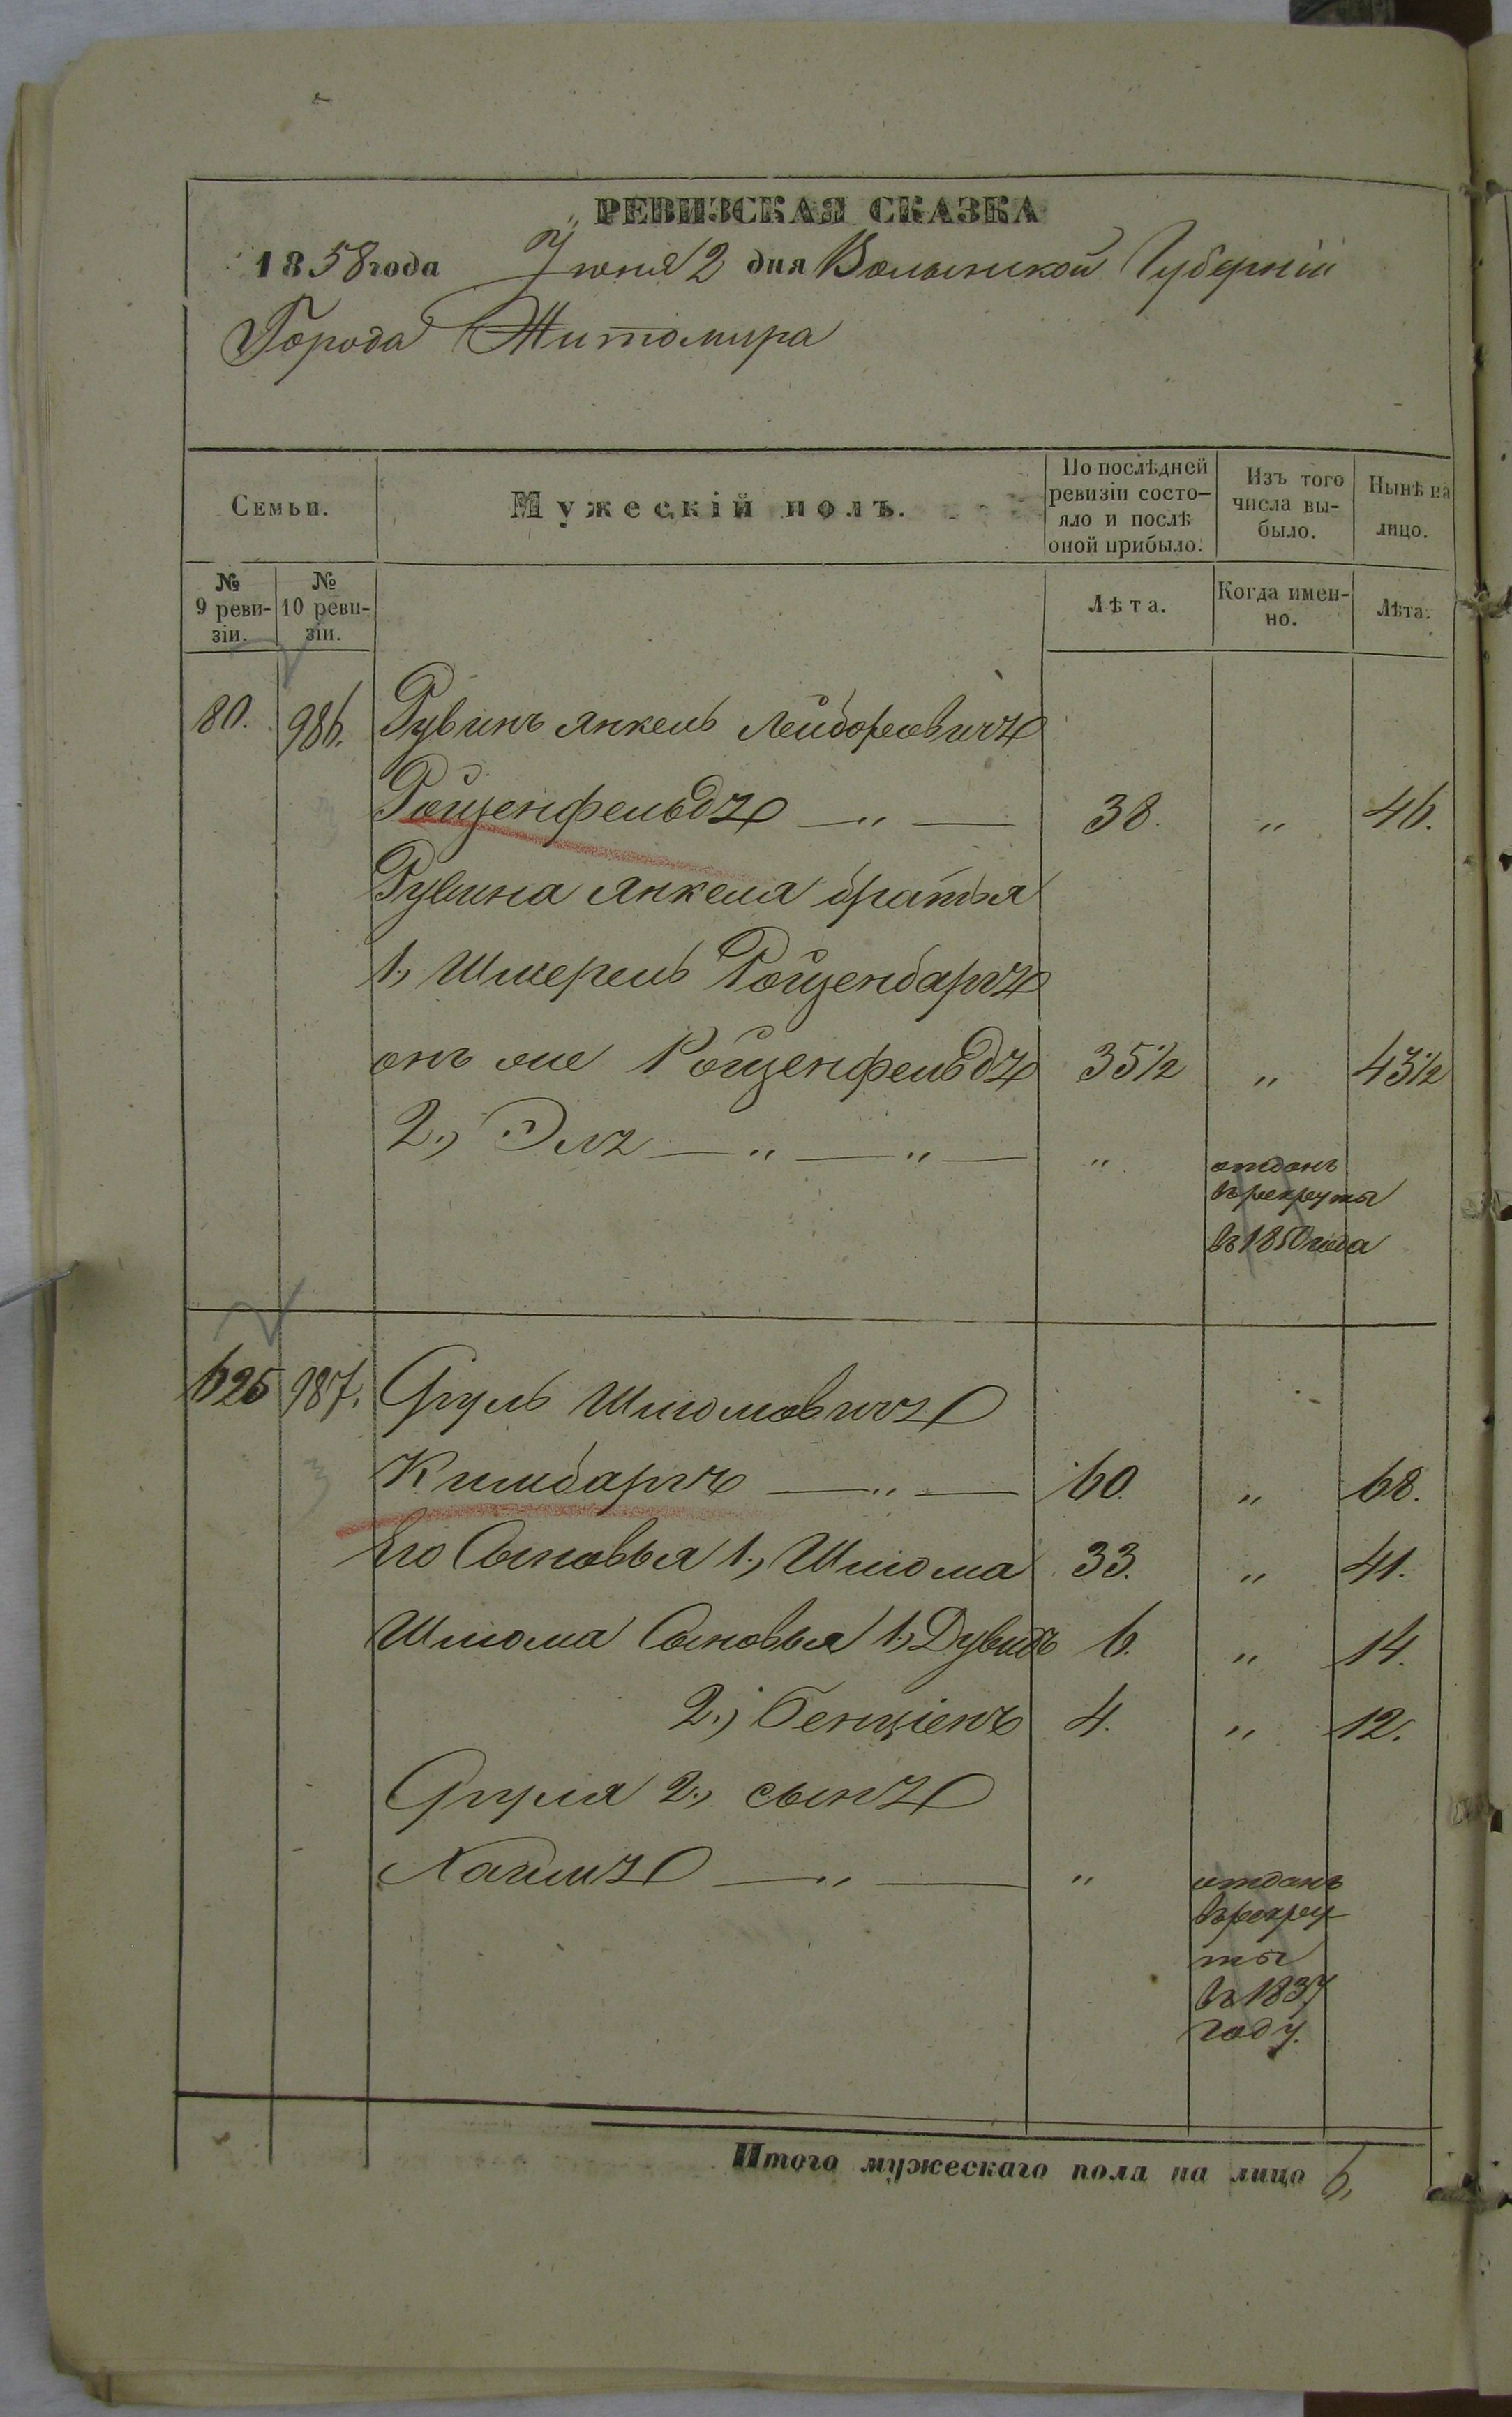 РЕВИЗСКАЯ СКАЗКА
1858 года Іюня 2 дня Волынской Губерніи
Города Житомира
Семьи. Мужескій полъ. По послѣдней ревизіи состояло и послѣ оной прибыло. Изъ того числа выбыло. Нынѣ на лицо.
№ 9 ревизіи. № 10 ревизіи. Лѣта. Когда именно. Лѣта.
80. 986. Рувинъ Янкель Лейбовичъ
Ройзенфельдъ — „ — 38. „ 46.
Рувина Янкеля братья
1., Шмерель Ройзенбаргъ
онъ же Ройзенфельдъ 35½ „ 43½
2., Элъ — „ — „ — „ отданъ
въ рекруты
въ 1850 года
625 987. Сруль Шліомовичъ
Кимбаргъ — „ — 60. „ 68.
Его Сыновья 1., Шліома 33. „ 41.
Шліома Сыновья 1., Дувидъ 6. „ 14.
2., Бенціенъ 4. „ 12.
Сруля 2., сынъ
Хаимъ — „ — „ отданъ
въ рекру
ты
въ 1837
году.
Итого мужескаго пола на лицо 6,